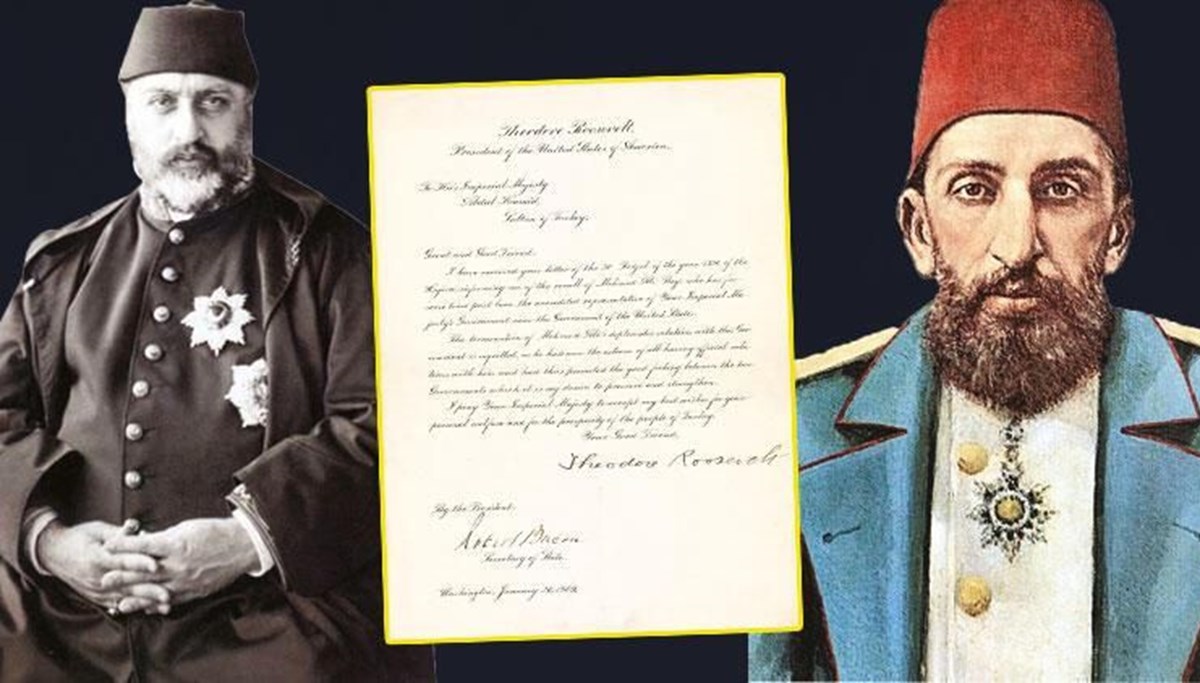 Theodore Roosevelt,
President of the United States of America.
To His Imperial Majesty
Abdul Hamid,
Sultan of Turkey.
Great and Good Friend:
I have received your letter of the of the year of the
informing me of the recall of Mehmed Bey, who has for
some time past been the accredited representative of Your Imperial Ma-
jesty's Government near the Government of the United States.
The termination of diplomatic relations with this Gov-
ernment is regretted, as he had won the esteem of all having official rela-
tions with him and had thus promoted the good feeling between the two
Governments which it is my desire to preserve and strengthen.
I pray Your Imperial Majesty to accept my best wishes for your
personal welfare and for the prosperity of the people of Turkey.
Your Good Friend,
Theodore Roosevelt
By the President:
Robert Bacon
Secretary of State.
Washington, January